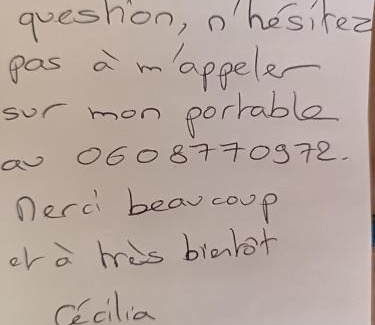 question, n'hésitez
pas à m'appeler
sur mon portable
au 0608770972.
Merci beaucoup
et à très bientôt
Cécilia